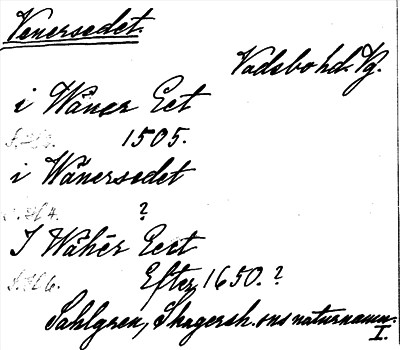 Venersedet.
Vadsbo hd. Vg.
i Wäner Eet
1505.
i Wänersedet
?
I Wähēr Eeet
Efter 1650.?
Sahlgren, Skagersh. ons naturnamn.
I.